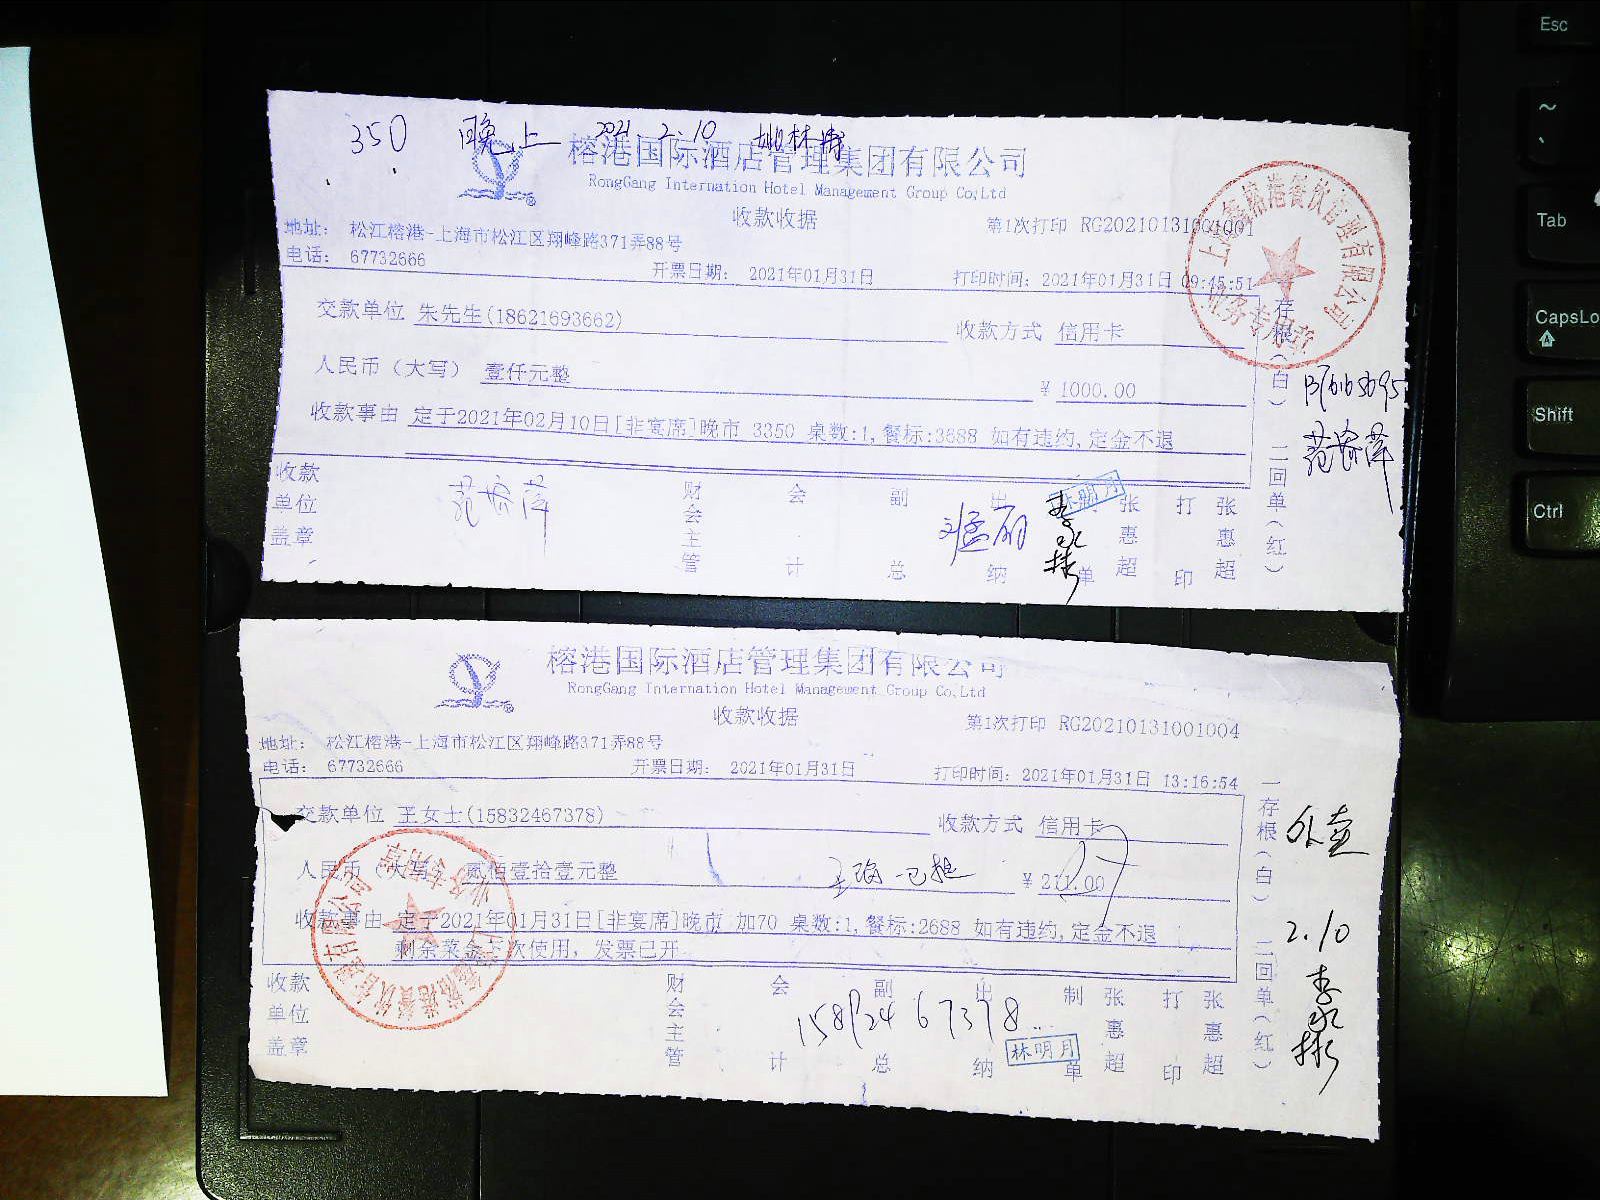 350 晚上 2021 2.10
榕港国际酒店管理集团有限公司
RongGang Internation Hotel Management Group Co,Ltd
收款收据
第1次打印 RG20210131001001
地址: 松江榕港-上海市松江区翔峰路371弄88号
电话: 67732666
开票日期: 2021年01月31日
打印时间: 2021年01月31日 09:45:51
交款单位 朱先生(18621693662)
收款方式 信用卡
人民币（大写） 壹仟元整
¥ 1000.00
收款事由 定于2021年02月10日[非宴席]晚市 3350 桌数:1,餐标:3688 如有违约,定金不退
收款单位盖章
财会主管
会计
副总
出纳
制单
张惠超
打印
张惠超
林明月
李永彬
一存根(白) 二回单(红)
业务专用章
榕港国际酒店管理集团有限公司
RongGang Internation Hotel Management Group Co,Ltd
收款收据
第1次打印 RG20210131001004
地址: 松江榕港-上海市松江区翔峰路371弄88号
电话: 67732666
开票日期: 2021年01月31日
打印时间: 2021年01月31日 13:16:54
交款单位 王女士(15832467378)
收款方式 信用卡
人民币（大写） 贰佰壹拾壹元整
¥ 211.00
收款事由 定于2021年01月31日[非宴席]晚市 加70 桌数:1,餐标:2688 如有违约,定金不退
剩余菜金下次使用, 发票已开
收款单位盖章
财会主管
会计
副总
出纳
制单
张惠超
打印
张惠超
15832467378
林明月
一存根(白) 二回单(红)
2.10
李永彬
Esc
~
Tab
CapsLo
Shift
Ctrl